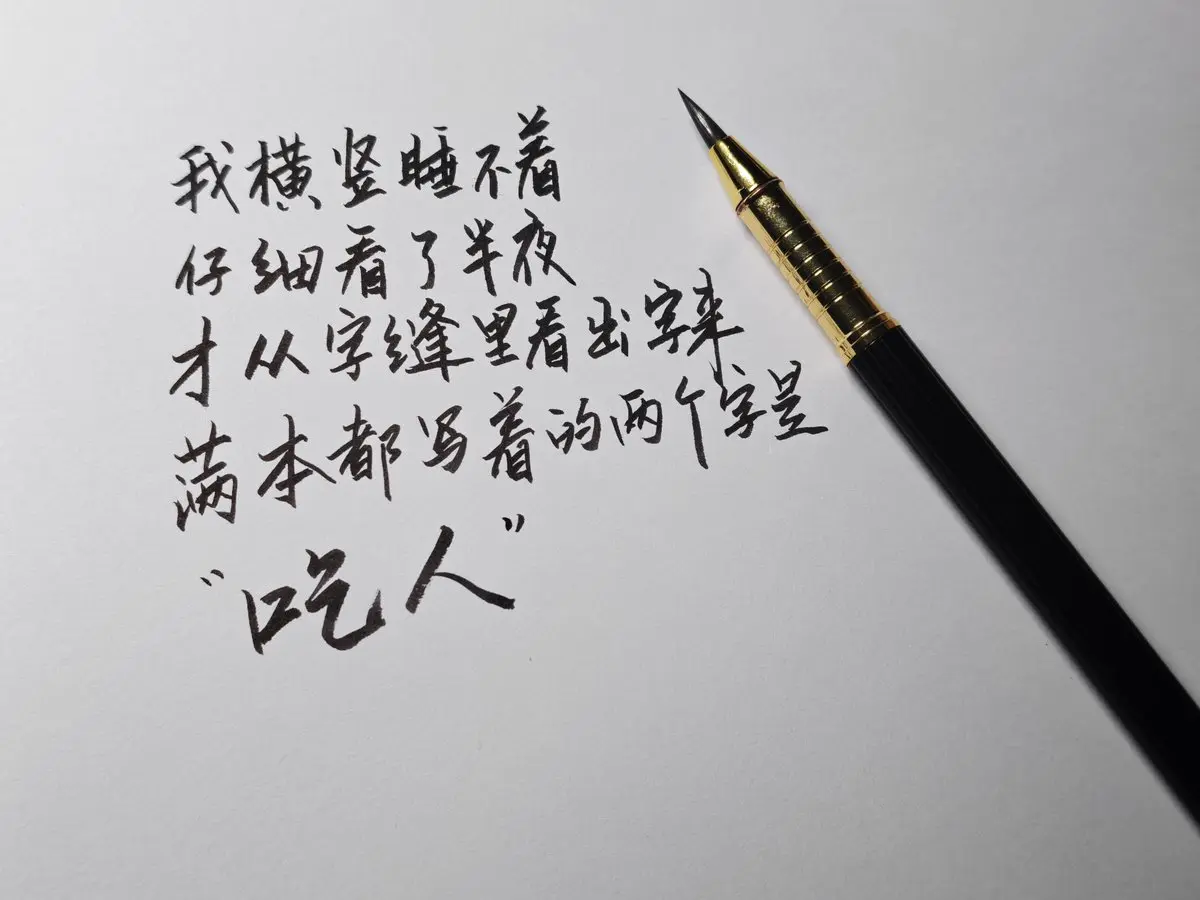 我横竖睡不着
仔细看了半夜
才从字缝里看出字来
满本都写着的两个字是
“吃人”